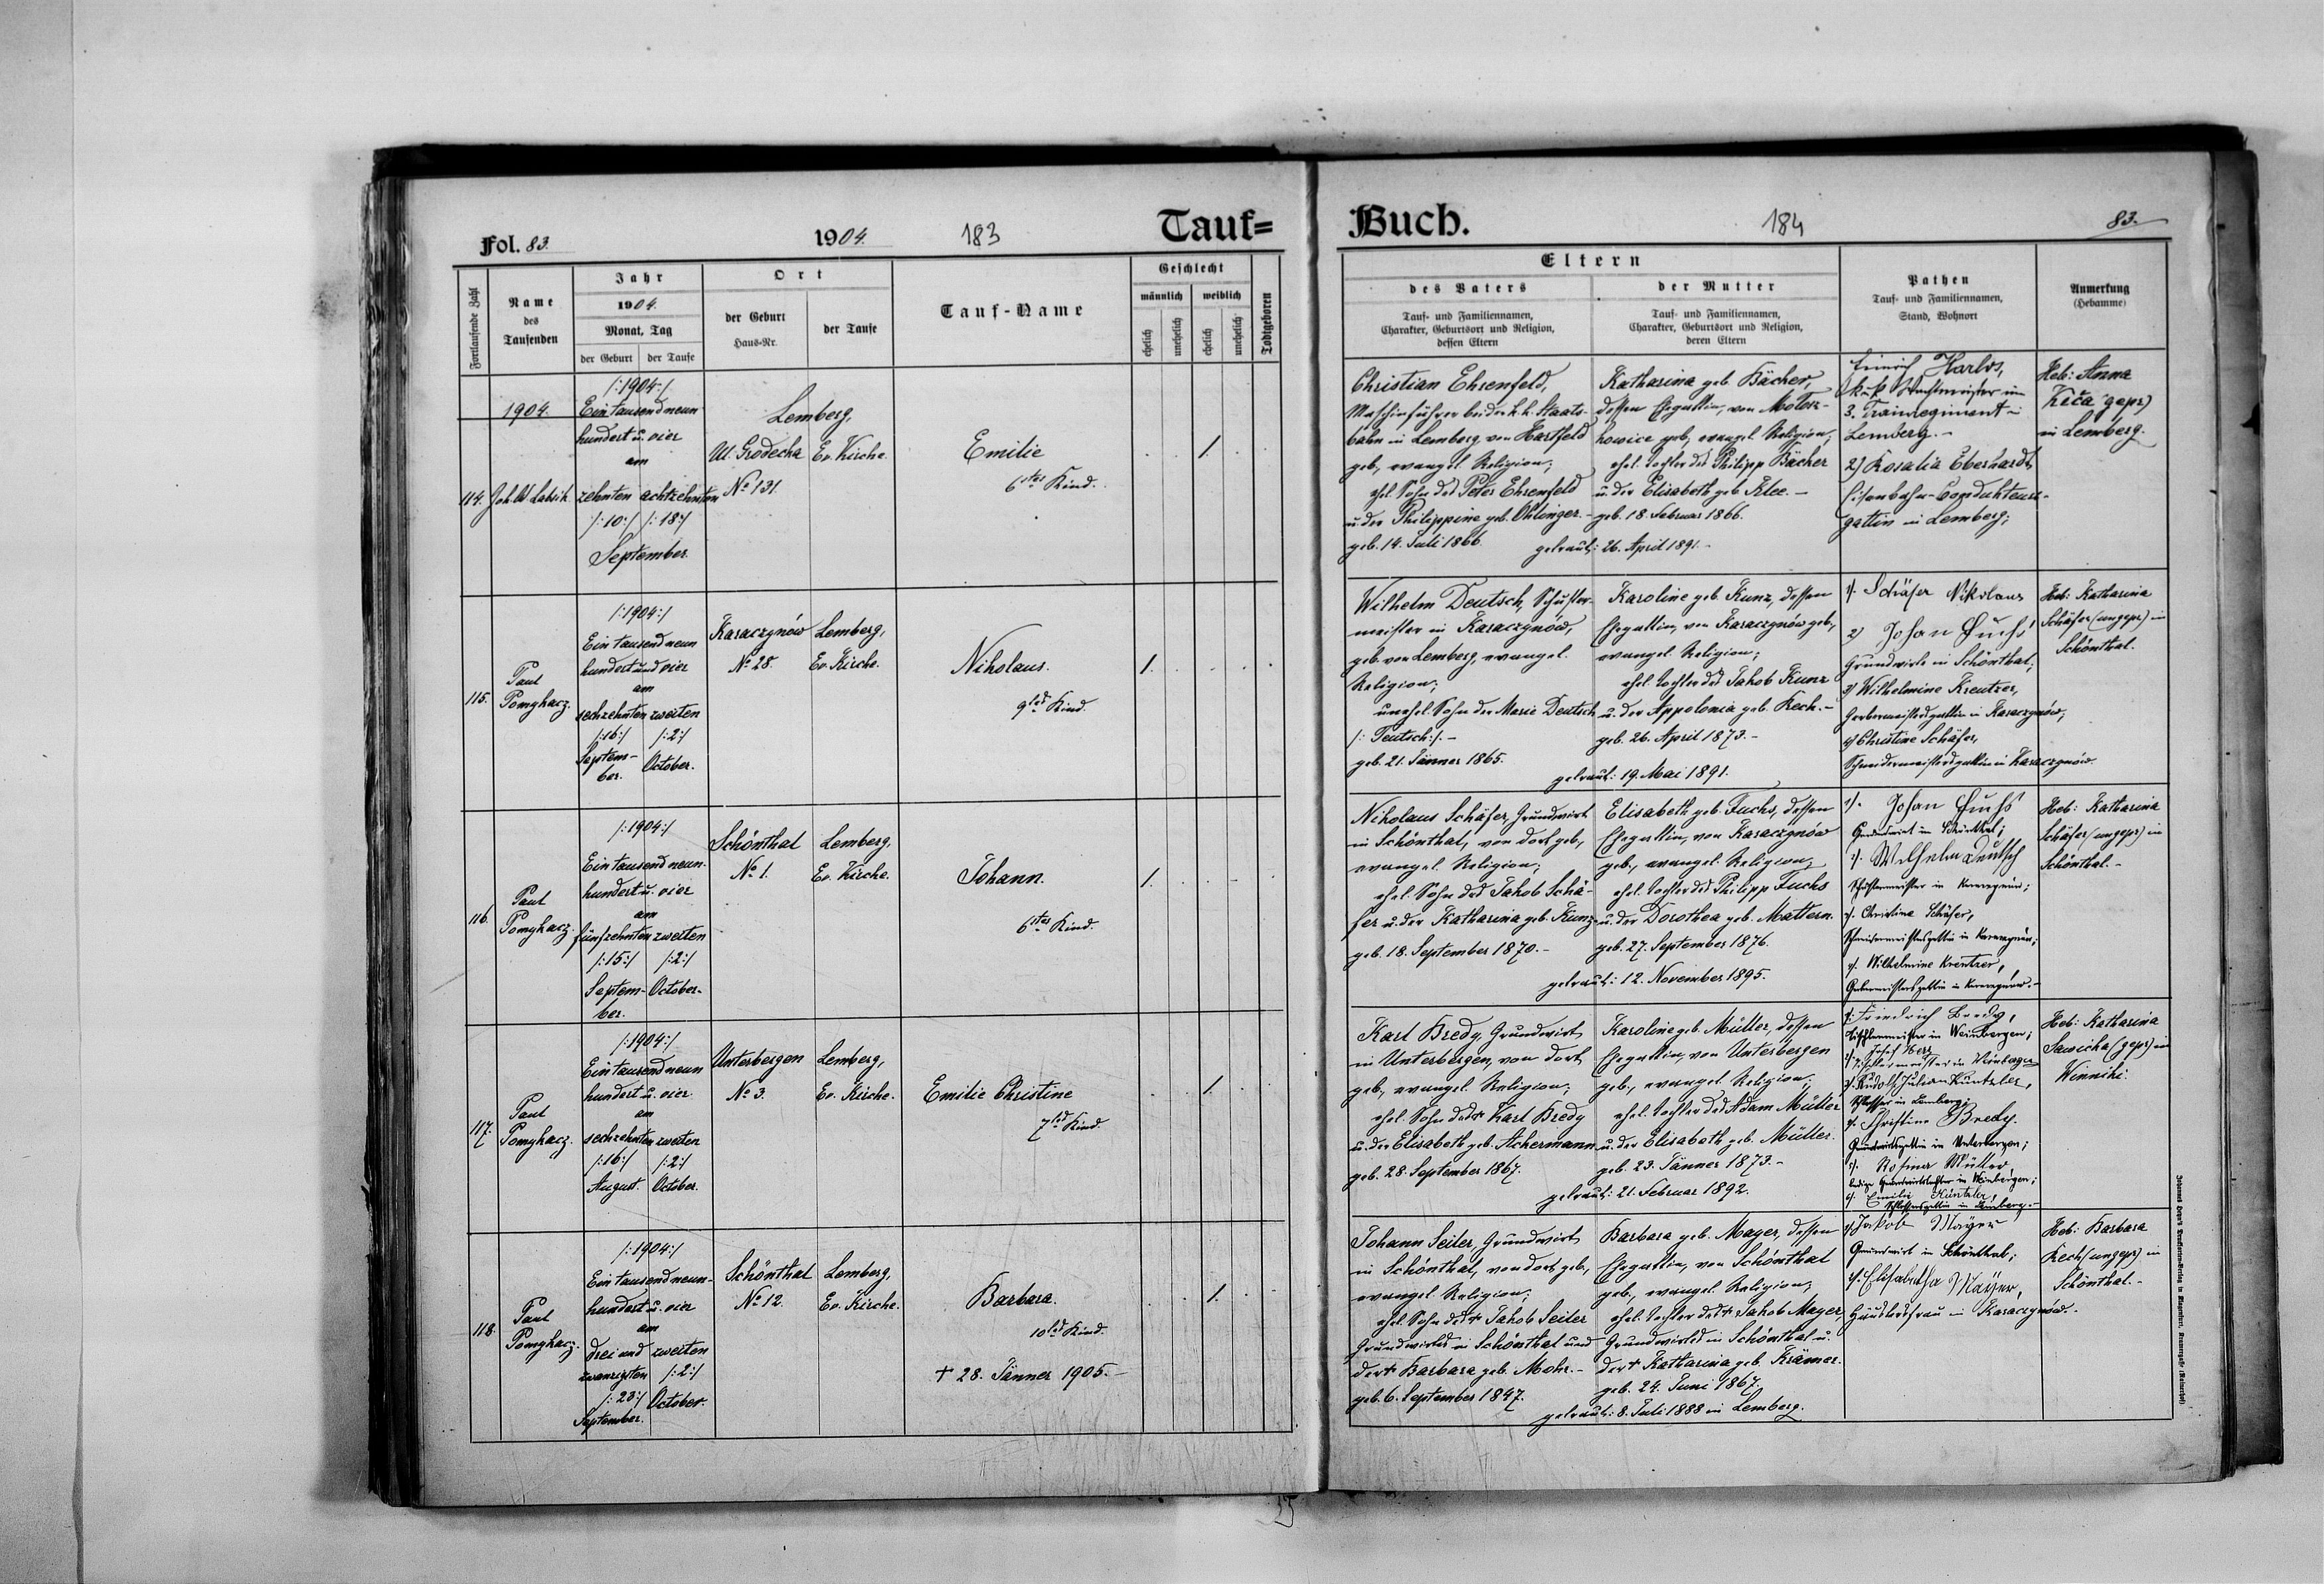 Fol. 83.
1904.
183
Tauf=
Fortlaufende Zahl
Name
des
Taufenden
Jahr
1904.
Monat, Tag
der Geburt
der Taufe
Ort
der Geburt
Haus-Nr.
der Taufe
Tauf-Name
Geschlecht
männlich
weiblich
ehelich
unehelich
ehelich
unehelich
Todtgeboren
1904.
/:1904:/
Ein tausend neun
hundert u. vier
am
zehnten achtzehnten
/:10:/ /:18:/
September.
114.
Lemberg,
Ul. Grodecka Ev. Kirche.
No 131.
Emilie
6tes Kind.
1
115.
Paul
Pomykacz.
/:1904:/
Ein tausend neun
hundert und vier
am
sechzehnten zweiten
/:16:/ /:2:/
Septem-
ber. October.
Karaczynów Lemberg,
No 28. Ev. Kirche.
Nikolaus.
9tes Kind.
1.
116.
Paul
Pomykacz.
/:1904:/
Ein tausend neun-
hundert u. vier
am
fünfzehnten zweiten
/:15:/ /:2:/
Septem- October.
ber.
Schönthal Lemberg,
No 1. Ev. Kirche.
Johann.
6tes Kind.
1.
117.
Paul
Pomykacz.
/:1904:/
Ein tausend neun
hundert u. vier
am
sechzehnten zweiten
/:16:/ /:2:/
August. October.
Unterbergen Lemberg,
No 3. Ev. Kirche.
Emilie Christine
7tes Kind.
1.
118.
Paul
Pomykacz.
/:1904:/
Ein tausend neun-
hundert u. vier
am
drei und zweiten
zwanzigsten /:2:/
/:23:/ October.
September.
Schönthal Lemberg,
No 12. Ev. Kirche.
Barbara.
10tes Kind.
† 28. Jänner 1905.-
1.
Buch.
184
83.
Eltern
des Vaters
Tauf- und Familiennamen,
Charakter, Geburtsort und Religion,
dessen Eltern
der Mutter
Tauf- und Familiennamen,
Charakter, Geburtsort und Religion,
deren Eltern
Pathen
Tauf- und Familiennamen,
Stand, Wohnort
Anmerkung
(Hebamme)
Christian Ehrenfeld,
Maschinführer bei der k.k. Staats-
bahn in Lemberg, von Hartfeld
geb., evangel. Religion;
ehel. Sohn des Peter Ehrenfeld
u. der Philippine geb. Ohlinger.-
geb. 14. Juli 1866.
Katharina geb. Bächer,
dessen Ehegattin, von
geb., evangel. Religion;
ehel. Tochter des Philipp Bächer
u. der Elisabeth geb. Klee.-
geb. 18. Februar 1866.
getraut: 26. April 1891.-
Harlos,
k.u.k. Wachtmeister im
3. Trainregiment in
Lemberg.-
2) Rosalia Eberhardt,
Eisenbahn-Condukteurs-
gattin in Lemberg;
Heb: Anna
(gepr)
in Lemberg.
Wilhelm Deutsch, Schuster-
meister in Karaczynow,
geb. von Lemberg, evangel.
Religion;
unehel. Sohn der Marie Deutsch
/: Teutsch:/.-
geb. 21. Jänner 1865.
Karoline geb. Kunz, dessen
Ehegattin, von Karaczynów geb.,
evangel. Religion;
ehel. Tochter des Jakob Kunz
u. der Appolonia geb. Rech.-
geb. 26. April 1873.-
getraut: 19. Mai 1891.
1). Schäfer Nikolaus
2) Johan Fuchs
Grundwirte in Schönthal;
3) Wilhelmine Kreutzer,
Gerbermeistersgattin in Karaczynów;
4) Christine Schäfer,
Schneidermeistersgattin in Karaczynów.
Heb: Katharina
Schäfer (ungepr) in
Schönthal.
Nikolaus Schäfer, Grundwirt
in Schönthal, von dort geb.,
evangel. Religion;
ehel. Sohn des Jakob Schä-
fer u. der Katharina geb. Kunz.
geb. 18. September 1870.-
Elisabeth geb. Fuchs, dessen
Ehegattin, von Karaczynów
geb., evangel. Religion;
ehel. Tochter des Philipp Fuchs
u. der Dorothea geb. Mattern.
geb. 27. September 1876.
getraut: 12. November 1895.
1). Johan Fuchs
Grundwirt in Schönthal;
Wilhelm Deutsch
Schustermeister in Karaczynów;
Christine Schäfer,
Schneidermeistersgattin in Karaczynów;
Wilhelmine Kreutzer,
Gerbermeistersgattin in Karaczynów.-
Heb: Katharina
Schäfer (ungepr) in
Schönthal.-
Karl Bredy, Grundwirt
in Unterbergen, von dort
geb., evangel. Religion;
ehel. Sohn des † Karl Bredy
u. der Elisabeth geb. Achermann
geb. 28. September 1867.
Karoline geb. Müller, dessen
Ehegattin, von Unterbergen
geb., evangel. Religion;
ehel. Tochter des Adam Müller
u. der Elisabeth geb. Müller.
geb. 23. Jänner 1873.-
getraut: 21. Februar 1892.
Friedrich Bredy,
Tischlermeister in Weinbergen;
Josef Herz
Rudolf Julian Küntzler,
Schlosser in Lemberg;
Christine Bredy.
Grundwirtsgattin in Unterbergen;
Rosina Müller,
ledige Grundwirtstochter in Weinbergen;
Emilie Küntzler,
Schlossersgattin in Lemberg.-
Heb: Katharina
Sawicka (gepr) in
Winniki.
Johann Seiler, Grundwirt
in Schönthal, von dort geb.,
evangel. Religion;
ehel. Sohn des † Jakob Seiler
Grundwirtes in Schönthal und
der † Barbara geb. Mohr.-
geb. 6. September 1847.
Barbara geb. Mayer, dessen
Ehegattin, von Schönthal
geb., evangel. Religion;
ehel. Tochter des † Jakob Mayer,
Grundwirtes in Schönthal u.
der † Katharina geb. Krämer.
geb. 24. Juni 1867.
getraut: 8. Juli 1888 in Lemberg.
1) Jakob Mayer
Grundwirt in Schönthal;
Elisabetha Mayer,
Häuslersfrau in Karaczynów.-
Heb: Barbara
Rech (ungepr) in
Schönthal.-